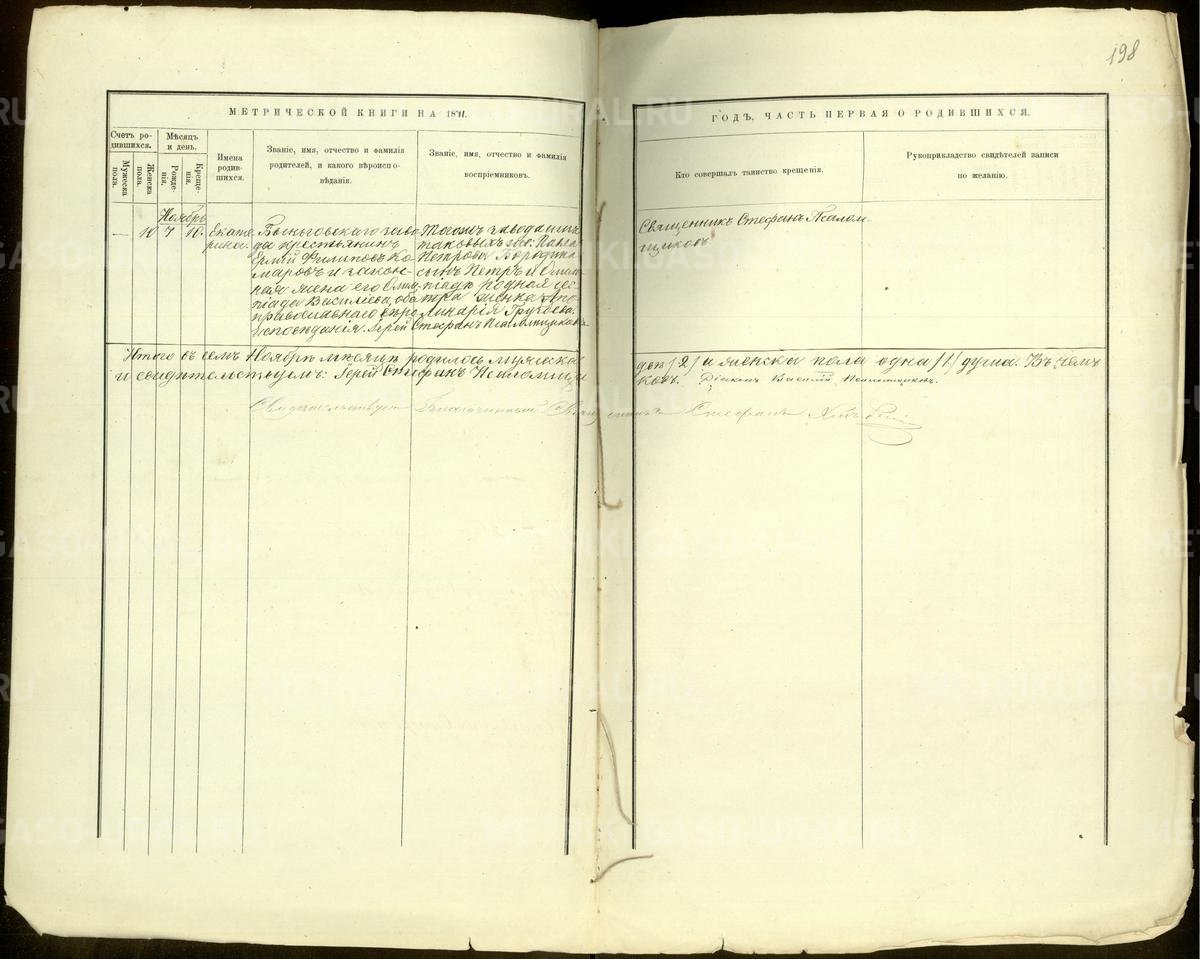 198
МЕТРИЧЕСКОЙ КНИГИ НА 1871.
ГОДЪ, ЧАСТЬ ПЕРВАЯ О РОДИВШИХСЯ.
Счетъ ро-
дившихся.
Мужеска
пола.
Женска
пола.
Мѣсяцъ
и день.
Рожде-
нія.
Креще-
нія.
Имена
родив-
шихся.
Званіе, имя, отчество и фамилія
родителей, и какого вѣроиспо-
вѣданія.
Званіе, имя, отчество и фамилія
воспріемниковъ.
Кто совершалъ таинство крещенія.
Рукоприкладство свидѣтелей записи
по желанію.
Ноябрь
— 10 7 10.
Екате
рина.
Быньговскаго заво
да крестьянинъ
Ермій Филиповъ Ко
маровъ и закон-
ная жена его Олим-
піада Василіева, оба
православнаго
вѣроисповѣданія.
Тогожъ завода
Павла
Петрова Бородина
сынъ Петръ и Олим
піады родная сес
тра
Іерей Стефанъ Псаломщиковъ
Священникъ Стефанъ Псалом-
щиковъ.
Итого въ семъ Ноябрѣ мѣсяцѣ родилось мужеска
два /2/ и женска пола одна /1/ душа. Въ чемъ
и свидѣтельствуемъ: Іерей Стефанъ Псаломщи
ковъ. Діаконъ Василій Псаломщиковъ.
Свидѣтельствую Благочинный Священникъ Стефанъ
METRIKI.GASO-URAL.RU